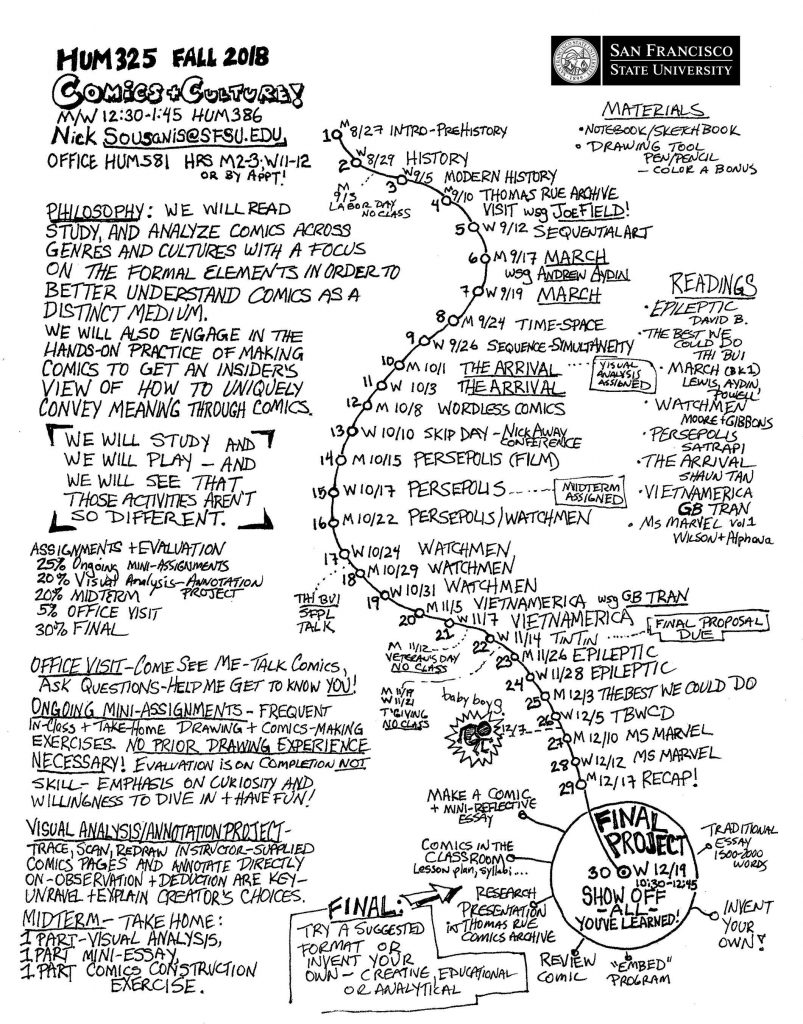 HUM325 FALL 2018
COMICS + CULTURE!
M/W 12:30-1:45 HUM386
Nick SOUSANIS@SFSU.EDU,
OFFICE HUM581 HRS M2-3, W11-12
OR BY APPT!
SAN FRANCISCO
STATE UNIVERSITY
MATERIALS
• NOTEBOOK/SKETCHBOOK
• DRAWING TOOL
PEN/PENCIL
– COLOR A BONUS
PHILOSOPHY: WE WILL READ
STUDY, AND ANALYZE COMICS ACROSS
GENRES AND CULTURES WITH A FOCUS
ON THE FORMAL ELEMENTS IN ORDER TO
BETTER UNDERSTAND COMICS AS A
DISTINCT MEDIUM.
WE WILL ALSO ENGAGE IN THE
HANDS-ON PRACTICE OF MAKING
COMICS TO GET AN INSIDER'S
VIEW OF HOW TO UNIQUELY
CONVEY MEANING THROUGH COMICS.
WE WILL STUDY AND
WE WILL PLAY – AND
WE WILL SEE THAT
THOSE ACTIVITIES AREN'T
SO DIFFERENT.
ASSIGNMENTS + EVALUATION
25% Ongoing MINI-ASSIGNMENTS
20% Visual Analysis-ANNOTATION
PROJECT
20% MIDTERM
5% OFFICE VISIT
30% FINAL
OFFICE VISIT – COME SEE ME – TALK COMICS,
ASK QUESTIONS – HELP ME GET TO KNOW YOU!
ONGOING MINI-ASSIGNMENTS – FREQUENT
IN-CLASS + TAKE-HOME DRAWING + COMICS-MAKING
EXERCISES. NO PRIOR DRAWING EXPERIENCE
NECESSARY! EVALUATION IS ON COMPLETION NOT
SKILL – EMPHASIS ON CURIOSITY AND
WILLINGNESS TO DIVE IN + HAVE FUN!
VISUAL ANALYSIS/ANNOTATION PROJECT –
TRACE, SCAN, REDRAW INSTRUCTOR-SUPPLIED
COMICS PAGES AND ANNOTATE DIRECTLY
ON – OBSERVATION + DEDUCTION ARE KEY –
UNRAVEL + EXPLAIN CREATOR'S CHOICES.
MIDTERM – TAKE HOME:
1 PART – VISUAL ANALYSIS,
1 PART MINI-ESSAY,
1 PART COMICS CONSTRUCTION
EXERCISE.
1 M 8/27 INTRO-PREHISTORY
2 W 8/29 HISTORY
M 9/3
LABOR DAY
NO CLASS
3 W 9/5 MODERN HISTORY
4 M 9/10 THOMAS RUE ARCHIVE
VISIT wsg JOE FIELD!
5 W 9/12 SEQUENTIAL ART
6 M 9/17 MARCH
wsg ANDREW AYDIN
7 W 9/19 MARCH
8 M 9/24 TIME-SPACE
9 W 9/26 SEQUENCE-SIMULTANEITY
10 M 10/1 THE ARRIVAL
VISUAL
ANALYSIS
ASSIGNED
11 W 10/3 THE ARRIVAL
12 M 10/8 WORDLESS COMICS
13 W 10/10 SKIP DAY – NICK AWAY
CONFERENCE
14 M 10/15 PERSEPOLIS (FILM)
15 W 10/17 PERSEPOLIS
MIDTERM
ASSIGNED
16 M 10/22 PERSEPOLIS/WATCHMEN
17 W 10/24 WATCHMEN
THI BUI
SFPL
TALK
18 M 10/29 WATCHMEN
19 W 10/31 WATCHMEN
20 M 11/5 VIETNAMERICA wsg GB TRAN
21 W 11/7 VIETNAMERICA
M 11/12
VETERAN'S DAY
NO CLASS
22 W 11/14 TINTIN
FINAL PROPOSAL
DUE
M 11/19
W 11/21
T'GIVING
NO CLASS
23 M 11/26 EPILEPTIC
24 W 11/28 EPILEPTIC
25 M 12/3 THE BEST WE COULD DO
26 W 12/5 TBWCD
baby boys
12/7
27 M 12/10 MS MARVEL
28 W 12/12 MS MARVEL
29 M 12/17 RECAP!
READINGS
• EPILEPTIC
DAVID B.
• THE BEST WE
COULD DO
THI BUI
• MARCH (BK1)
LEWIS, AYDIN,
POWELL
• WATCHMEN
MOORE + GIBBONS
• PERSEPOLIS
SATRAPI
• THE ARRIVAL
SHAUN TAN
• VIETNAMERICA
GB TRAN
• MS MARVEL vol 1
WILSON + Alphona
FINAL
PROJECT
30 W 12/19
10:30-12:45
SHOW OFF
– ALL –
YOU'VE LEARNED!
MAKE A COMIC
+ MINI-REFLECTIVE
ESSAY
COMICS IN THE
CLASSROOM
Lesson plan, syllabi...
RESEARCH
PRESENTATION
in THOMAS RUE
COMICS ARCHIVE
REVIEW
COMIC
"EMBED"
PROGRAM
INVENT
YOUR
OWN!
TRADITIONAL
ESSAY
1500-2000
WORDS
FINAL:
– TRY A SUGGESTED
FORMAT OR
INVENT YOUR
OWN – CREATIVE, EDUCATIONAL
OR ANALYTICAL